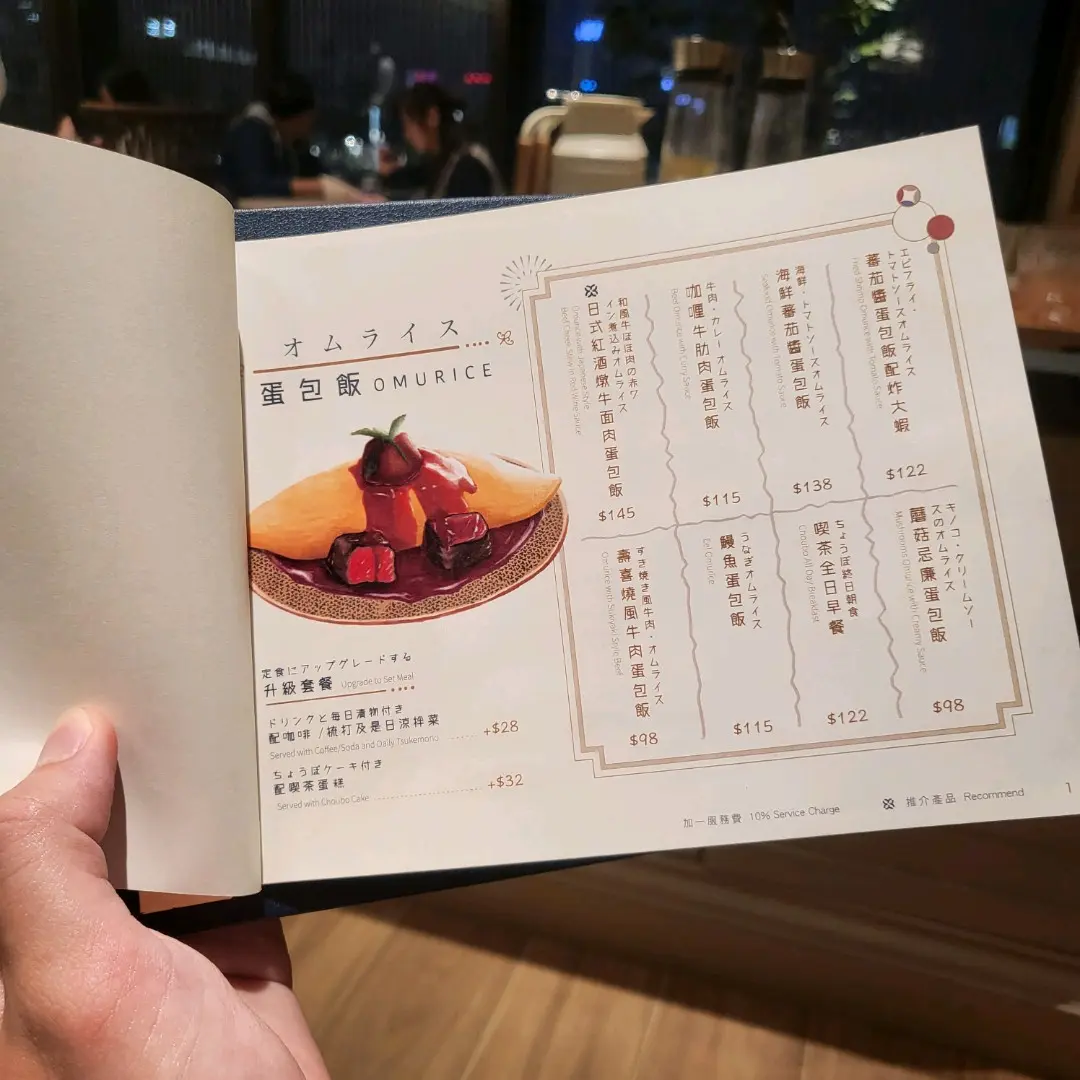 オムライス
蛋包飯 OMURICE
定食にアップグレードする
升級套餐 Upgrade to Set Meal
ドリンクと毎日漬物付き
配咖啡/梳打及是日涼拌菜 +$28
Served with Coffee/Soda and Daily Tsukemono
ちょうぼケーキ付き
配喫茶蛋糕 +$32
Served with Choubo Cake
エビフライ・
トマトソースオムライス
蕃茄醬蛋包飯配炸大蝦
Fried Shrimp Omurice with Tomato Sauce
$122
海鮮・トマトソースオムライス
海鮮蕃茄醬蛋包飯
Seafood Omurice with Tomato Sauce
$138
牛肉・カレーオムライス
咖喱牛肋肉蛋包飯
Beef Omurice with Curry Sauce
$115
和風牛ほほ肉の赤ワ
イン煮込みオムライス
日式紅酒燉牛面肉蛋包飯
Omurice with Japanese Style
Beef Cheek Stew in Red Wine Sauce
$145
キノコ・クリームソー
スのオムライス
蘑菇忌廉蛋包飯
Mushrooms Omurice with Creamy Sauce
$98
ちょうぼ終日朝食
喫茶全日早餐
Choubo All Day Breakfast
$122
うなぎオムライス
鰻魚蛋包飯
Eel Omurice
$115
すき焼き風牛肉・オムライス
壽喜燒風牛肉蛋包飯
Omurice with Sukiyaki Style Beef
$98
加一服務費 10% Service Charge
推介產品 Recommend
1